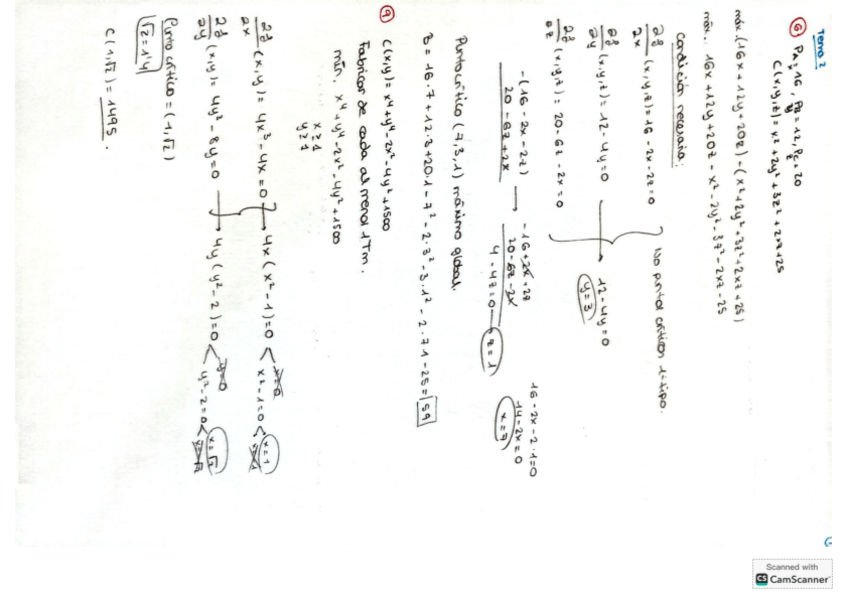 Tema 2
⑥ Pₐ=16, P_B=12, P_C=20
C(x,y,z)=x²+2y²+3z²+2xz+25
máx (16x+12y+20z)-(x²+2y²+3z²+2xz+25)
máx: 16x+12y+20z-x²-2y²-3z²-2xz-25
Condición necesaria:
∂f/∂x (x,y,z)=16-2x-2z=0
No puntos críticos 1º tipo.
∂f/∂y (x,y,z)=12-4y=0 → 12-4y=0
y=3
∂f/∂z (x,y,z)=20-6z-2x=0
-(16-2x-2z) → -16+2x+2z
20-6z+2x
20-6z-2x
4-4z=0 → z=1
16-2x-2·1=0
14-2x=0
x=7
Punto crítico (7,3,1) máximo global.
B=16·7+12·3+20·1-7²-2·3²-3·1²-2·7·1-25=59
⑨ C(x,y)=x⁴+y⁴-2x²-4y²+1500
Fabricar de cada al menos 1Tm.
mín. x⁴+y⁴-2x²-4y²+1500
x≥1
y≥1
∂f/∂x (x,y)=4x³-4x=0 → 4x(x²-1)=0 < x=0
x²-1=0 < x=1
x=-1
∂f/∂y (x,y)=4y³-8y=0 → 4y(y²-2)=0 < y=0
y²-2=0 < x=√2
x=-√2
Punto crítico=(1,√2)
√2=1'4
C(1,√2)=1495.
Scanned with
CS CamScanner